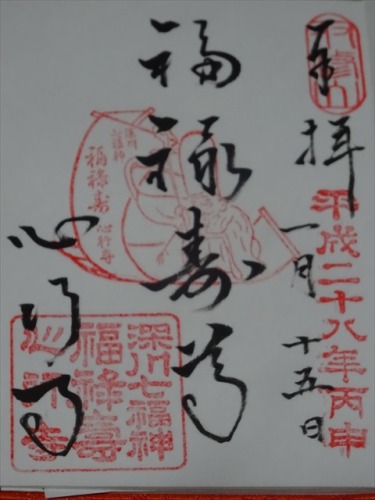 奉拝
平成二十八年丙申
一月十五日
福禄寿尊
心行寺
福禄寿
心行寺
深川七福神
福祿壽
心行寺